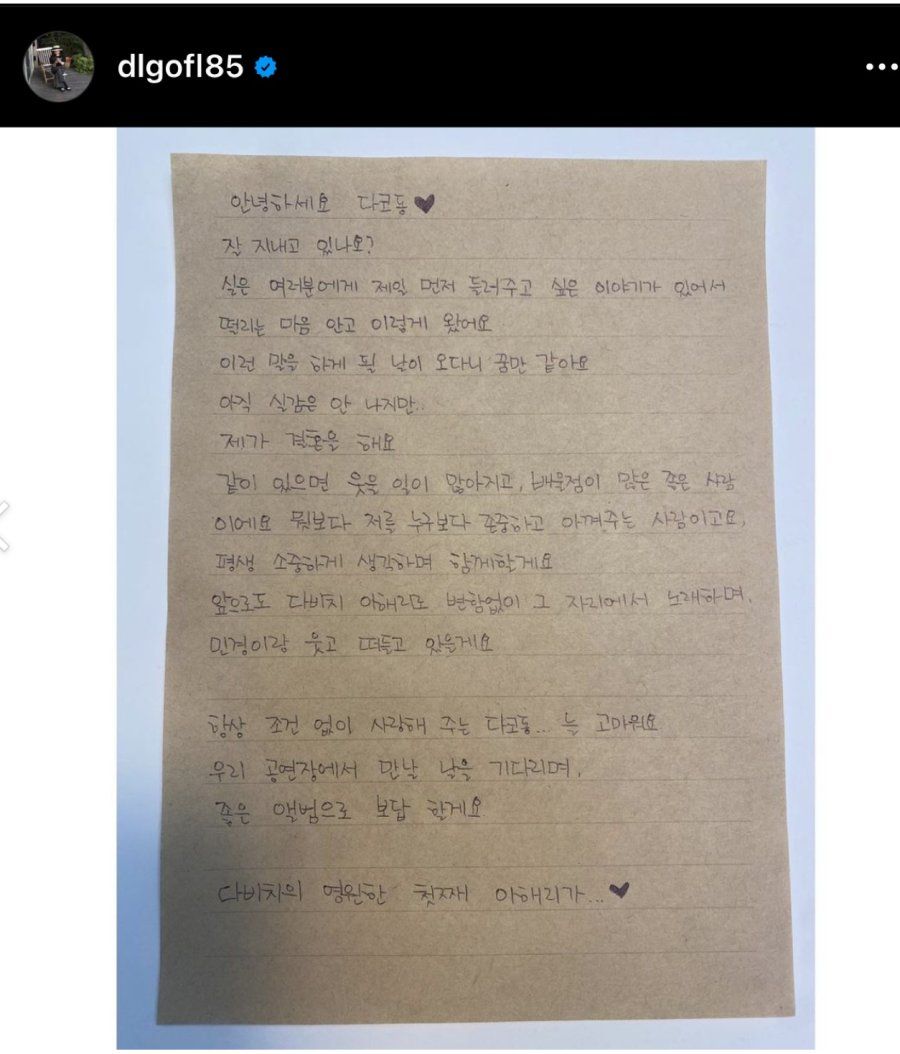 dlgofl85
안녕하세요 다코동♥
잘 지내고 있나요?
실은 여러분에게 제일 먼저 들려주고 싶은 이야기가 있어서
떨리는 마음 안고 이렇게 왔어요
이런 말을 하게 될 날이 오다니 꿈만 같아요
아직 실감은 안 나지만..
제가 결혼을 해요
같이 있으면 웃을 일이 많아지고, 배울점이 많은 좋은 사람
이에요 뭣보다 저를 누구보다 존중하고 아껴주는 사람이고요,
평생 소중하게 생각하며 함께할게요
앞으로도 다비치 이해리로 변함없이 그 자리에서 노래하며,
민경이랑 웃고 떠들고 있을게요
항상 조건 없이 사랑해 주는 다코동... 늘 고마워요
우리 공연장에서 만날 날을 기다리며,
좋은 앨범으로 보답 할게요
다비치의 영원한 첫째 이해리가...♥